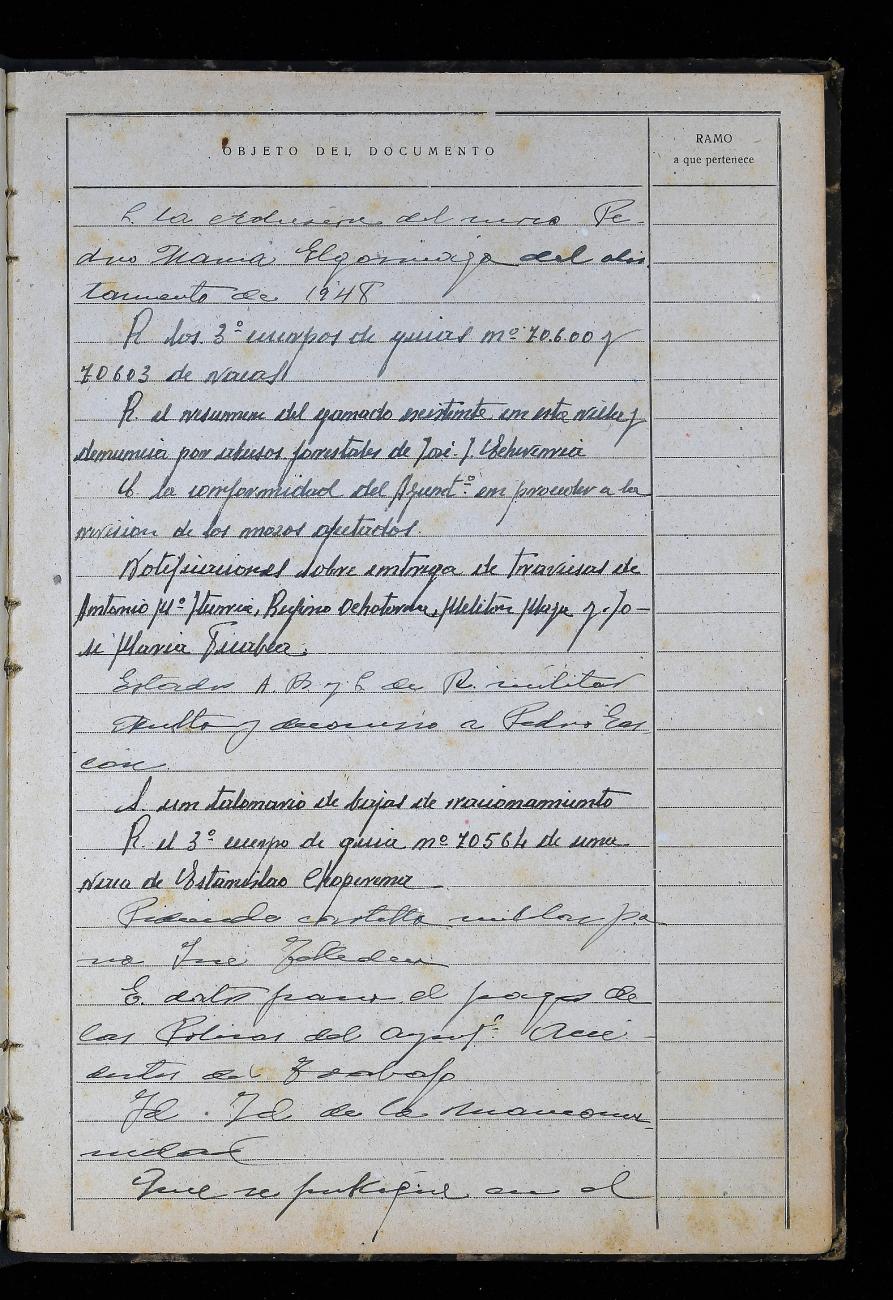 OBJETO DEL DOCUMENTO
RAMO
a que pertenece
la del mozo Pe-
dro Maria Elgorriaga del alis-
tamiento de 1948
R los 3º cuerpos de guias nº 70.600 y
70603 de vacas
R. el resumen del ganado existente en esta villa y
denuncia por abusos forestales de José J. Echeverria
la conformidad del Ayuntº en proceder a la
revision de los mozos afectados.
Notificaciones sobre entrega de traviesas de
Antonio Mº Iturria, Rufino Ochotorena, Meliton Maya y Jo-
se Maria
Estados A. B y C de R. militar
Multa y decomiso a Pedro Gas
con
S. un talonario de bajas de racionamiento
R. el 3º cuerpo de guia nº 70564 de una
vaca de Estanislao Choperena
cartilla militar pa
ra José
E. datos para el pago de
las Polizas del Ayuntº Acci-
dentes del Trabajo
Id. Id de la Mancomu-
nidad
Que se en el